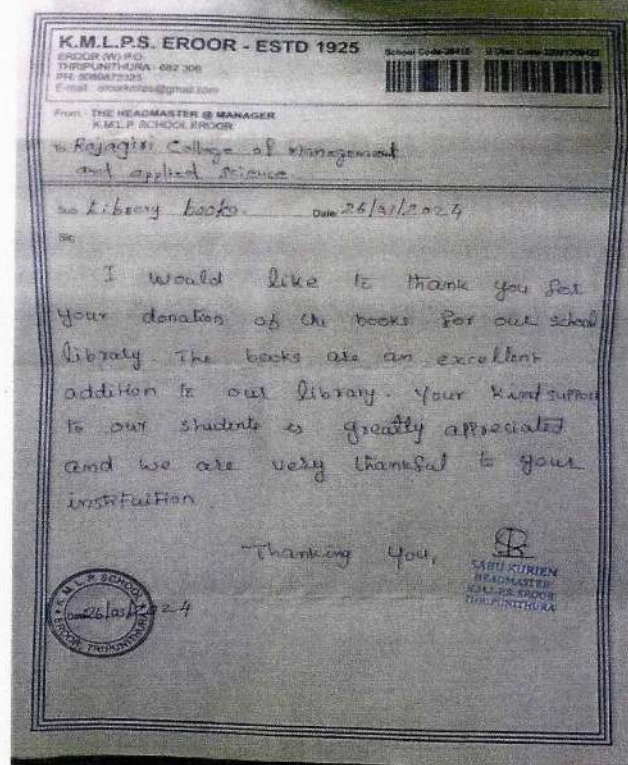 K.M.L.P.S. EROOR - ESTD 1925
EROOR (W) P.O.
THRIPUNITHURA - 682 306
E-mail
School Code
From - THE HEADMASTER @ MANAGER
K.M.L.P. SCHOOL EROOR
To Rajagiri College of Management
and applied science
Sub Library books. Date
Sir,
I would like to thank you for
your donation of the books for our school
library. The books are an excellent
addition to our library. Your kind support
to our students is greatly appreciated
and we are very thankful to your
instituition.
Thanking You,
SABU KURIEN
HEADMASTER
K.M.L.P.S. EROOR
THRIPUNITHURA
K.M.L.P. SCHOOL
Date 26/03/2024
EROOR, TRIPUNITHURA